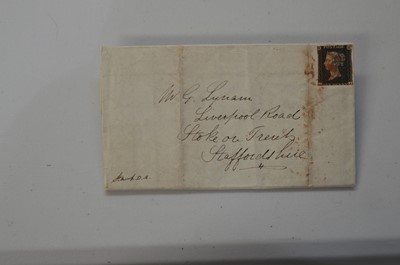 Mr G Lynam
Liverpool Road
Stoke on Trent
Staffordshire